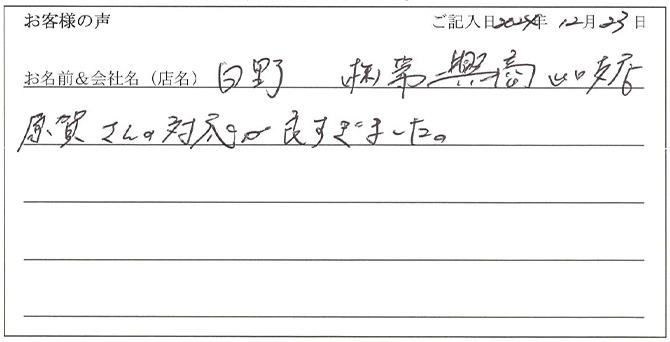 お客様の声 ご記入日2024年 12月23日
お名前&会社名(店名) 日野 興商
原賀さんの対応が良すぎました。